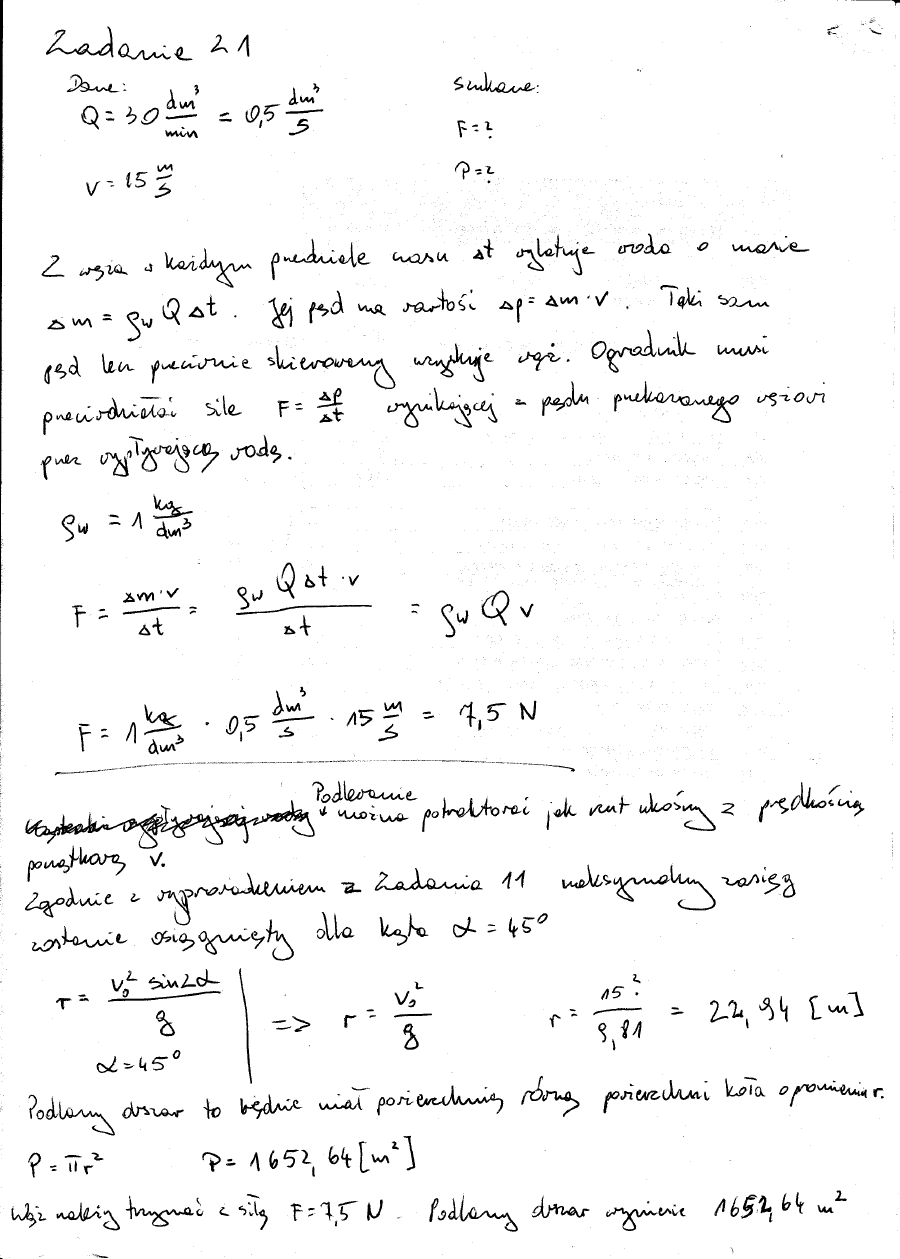 Zadanie 21
Dane: Szukane:
Q = 30 dm³/min = 0,5 dm³/s F = ?
v = 15 m/s P = ?
Z węża w każdym przedziale czasu Δt wylatuje woda o masie
Δm = ρw Q Δt. Jej pęd ma wartości Δp = Δm · v. Taki sam
pęd lecz przeciwnie skierowany uzyskuje wąż. Ogrodnik musi
przeciwdziałać sile F = Δp/Δt wynikającej z pędu przekazanego wężowi
przez wypływającą wodę.
ρw = 1 kg/dm³
F = Δm·v/Δt = ρw Q Δt · v/Δt = ρw Q v
F = 1 kg/dm³ · 0,5 dm³/s · 15 m/s = 7,5 N
Podlewanie można potraktować jak rzut ukośny z prędkością
początkową v.
Zgodnie z wyprowadzeniem z Zadania 11 maksymalny zasięg
zostanie osiągnięty dla kąta α = 45°
r = v₀² sin2α/g => r = v₀²/g r = 15²/9,81 = 22,94 [m]
α = 45°
Podlany obszar to będzie miał powierzchnię równą powierzchni koła o promieniu r.
P = πr² P = 1652,64 [m²]
Wąż należy trzymać z siłą F = 7,5 N. Podlany obszar wyniesie 1652,64 m²